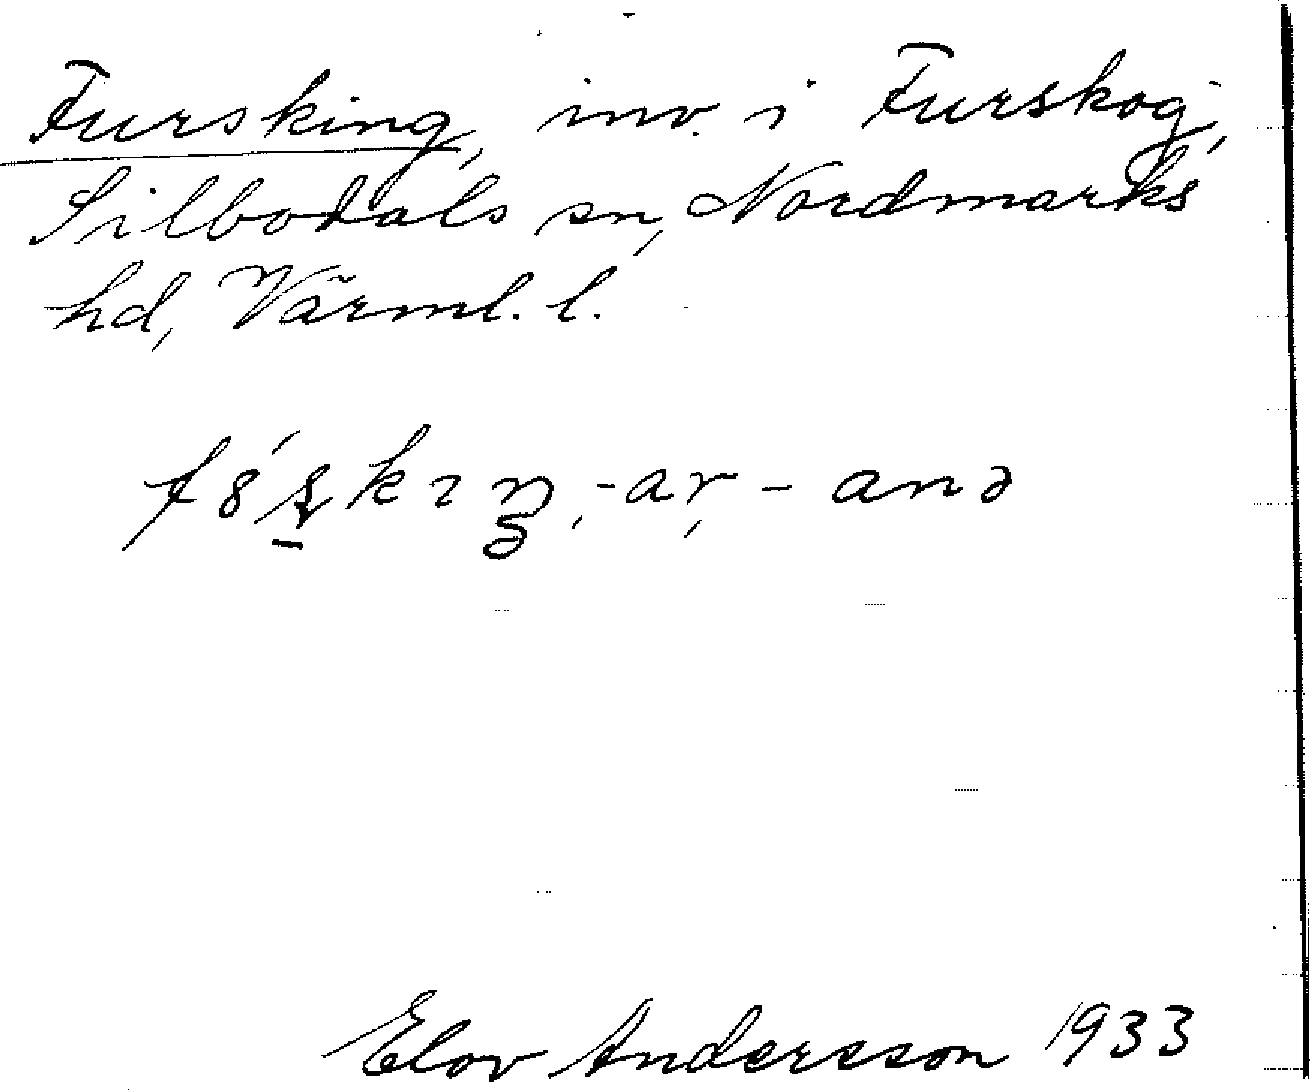 Fursking, inv. i Furskog,
Silbodals sn, Nordmarks
hd, Värml. l.
-ar, - anə
Elov Andersson 1933